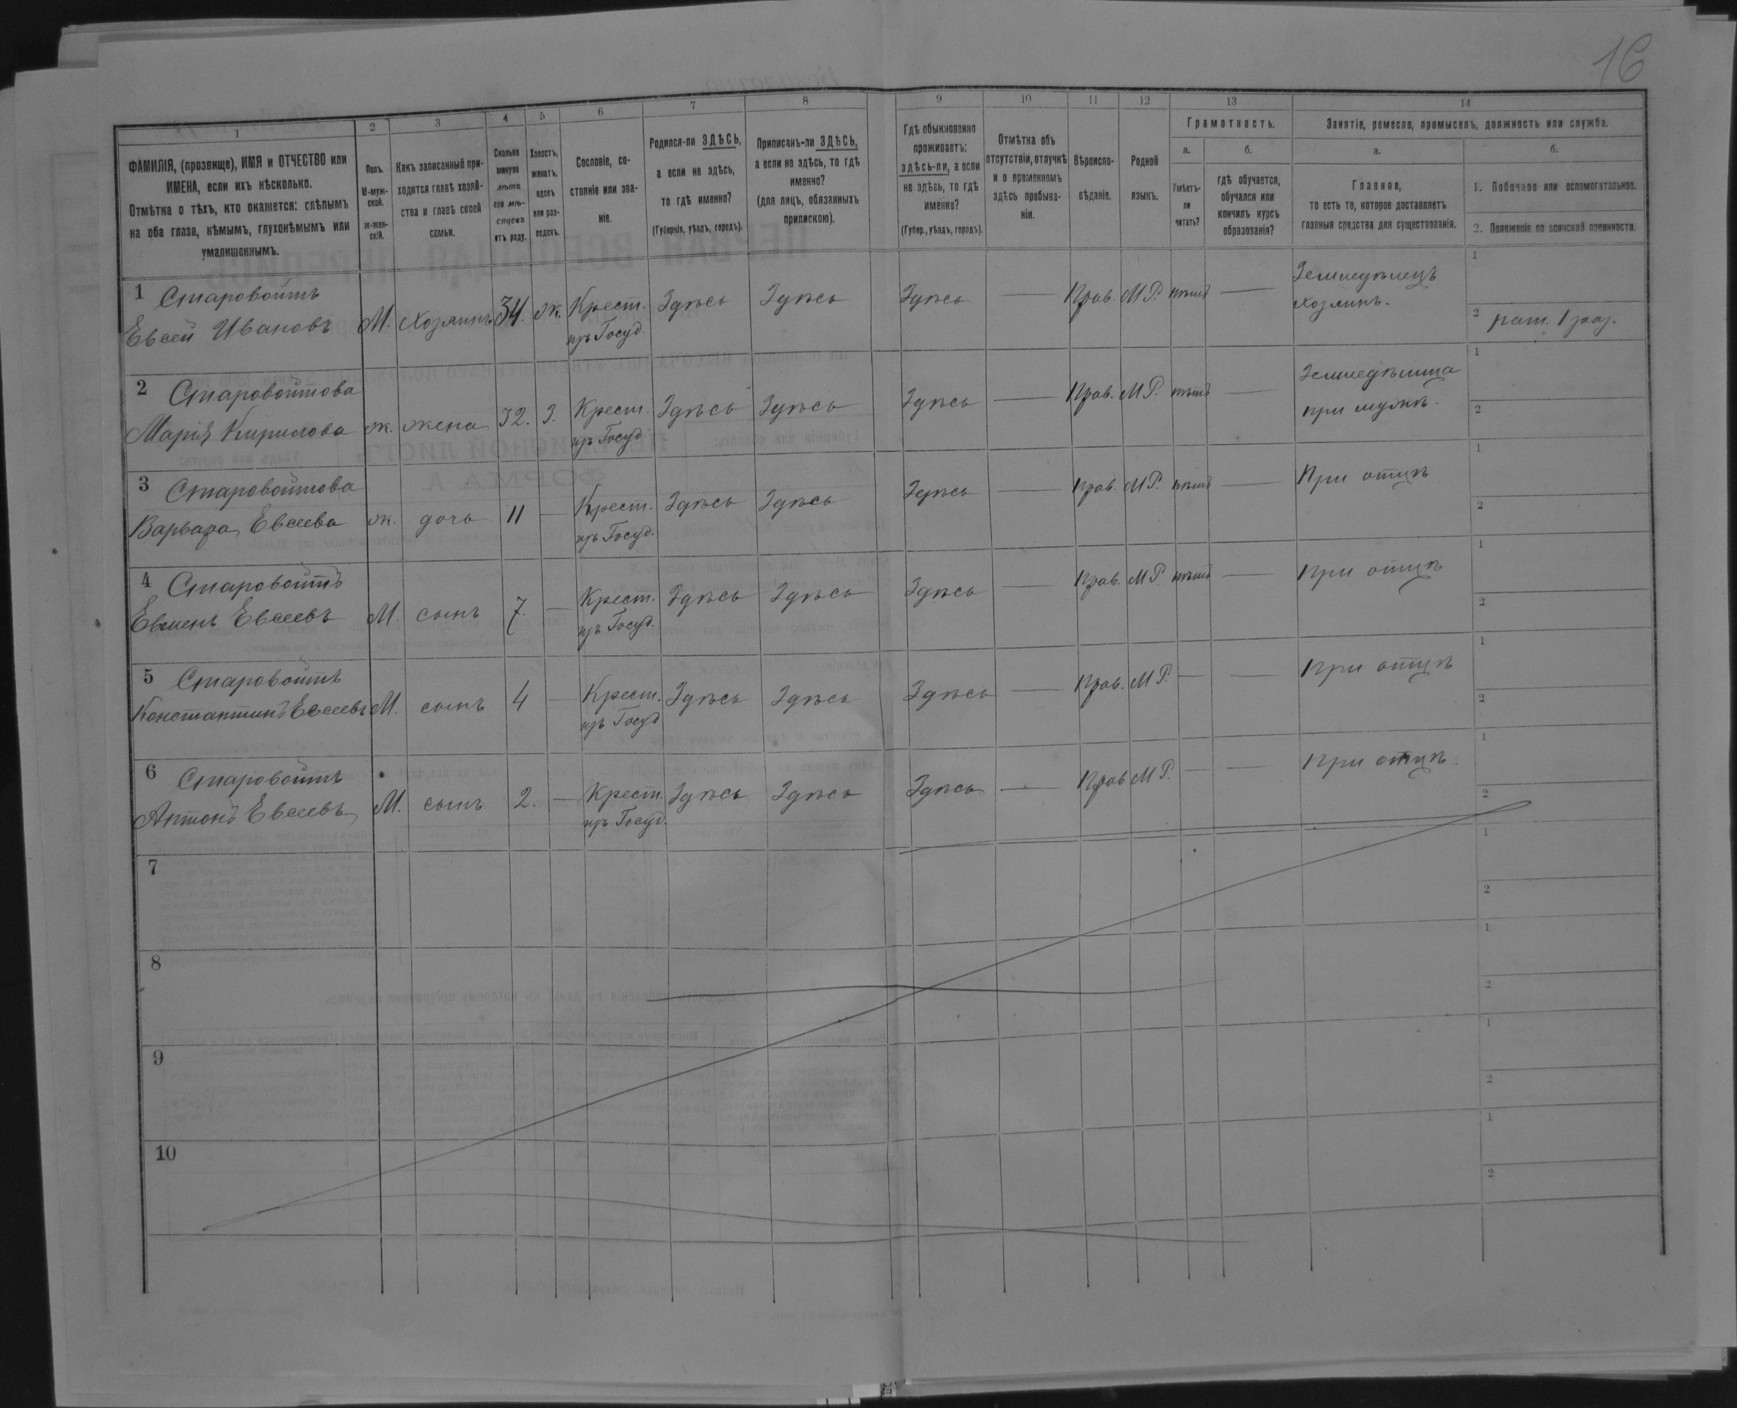 16
1 2 3 4 5 6 7 8 9 10 11 12 13 14
ФАМИЛІЯ, (прозвище), ИМЯ и ОТЧЕСТВО или
ИМЕНА, если ихъ нѣсколько.
Отмѣтка о тѣхъ, кто окажется: слѣпымъ
на оба глаза, нѣмымъ, глухонѣмымъ или
умалишеннымъ.
Полъ.
М-муж-
ской.
Ж-жен-
скій.
Какъ записанный при-
ходится главѣ хозяй-
ства и главѣ своей
семьи.
Сколько
минуло
лѣтъ
или мѣ-
сяцевъ
отъ роду.
Холостъ,
женатъ,
вдовъ
или раз-
веденъ.
Сословіе, со-
стояніе или зва-
ніе.
Родился-ли ЗДѢСЬ,
а если не здѣсь,
то гдѣ именно?
(Губернія, уѣздъ, городъ).
Приписанъ-ли ЗДѢСЬ,
а если не здѣсь, то гдѣ
именно?
(для лицъ, обязанныхъ
припискою).
Гдѣ обыкновенно
проживаетъ:
здѣсь-ли, а если
не здѣсь, то гдѣ
именно?
(Губер., уѣздъ, городъ).
Отмѣтка объ
отсутствіи, отлучкѣ
и о временномъ
здѣсь пребыва-
ніи.
Вѣроиспо-
вѣданіе.
Родной
языкъ.
Грамотность.
а.
Умѣетъ-
ли
читать?
б.
гдѣ обучается,
обучался или
кончилъ курсъ
образованія?
Занятіе, ремесло, промыселъ, должность или служба.
а.
Главное,
то есть то, которое доставляетъ
главныя средства для существованія.
б.
1. Побочное или вспомогательное.
2. Положеніе по воинской повинности.
1 Старовойтъ
Евсей Ивановъ М. Хозяинъ 34. ж. Крест. Здѣсь Здѣсь Здѣсь — Прав. М.Р. нѣтъ — Земледѣлецъ 1
изъ Госуд. хозяинъ. 2 рат. 1 раз.
2 Старовойтова
Марія Кирилова ж. жена 32. З. Крест. Здѣсь Здѣсь Здѣсь — Прав. М.Р. нѣтъ — Земледѣлица 1
изъ Госуд при мужѣ. 2
3 Старовойтова
Варвара Евсеева ж. дочь 11 — Крест. Здѣсь Здѣсь Здѣсь — Прав. М.Р. нѣтъ — При отцѣ 1
изъ Госуд. 2
4 Старовойтъ
Евсеевъ М. сынъ 7. — Крест. Здѣсь Здѣсь Здѣсь — Прав. М.Р. нѣтъ — При отцѣ 1
изъ Госуд. 2
5 Старовойтъ
Константинъ Евсеевъ М. сынъ 4 — Крест. Здѣсь Здѣсь Здѣсь — Прав. М.Р. — — При отцѣ 1
изъ Госуд 2
6 Старовойтъ
Антонъ Евсеевъ М. сынъ 2. — Крест. Здѣсь Здѣсь Здѣсь — Прав М.Р. — — При отцѣ. 1
изъ Госуд. 2
7 1
2
8 1
2
9 1
2
10 1
2